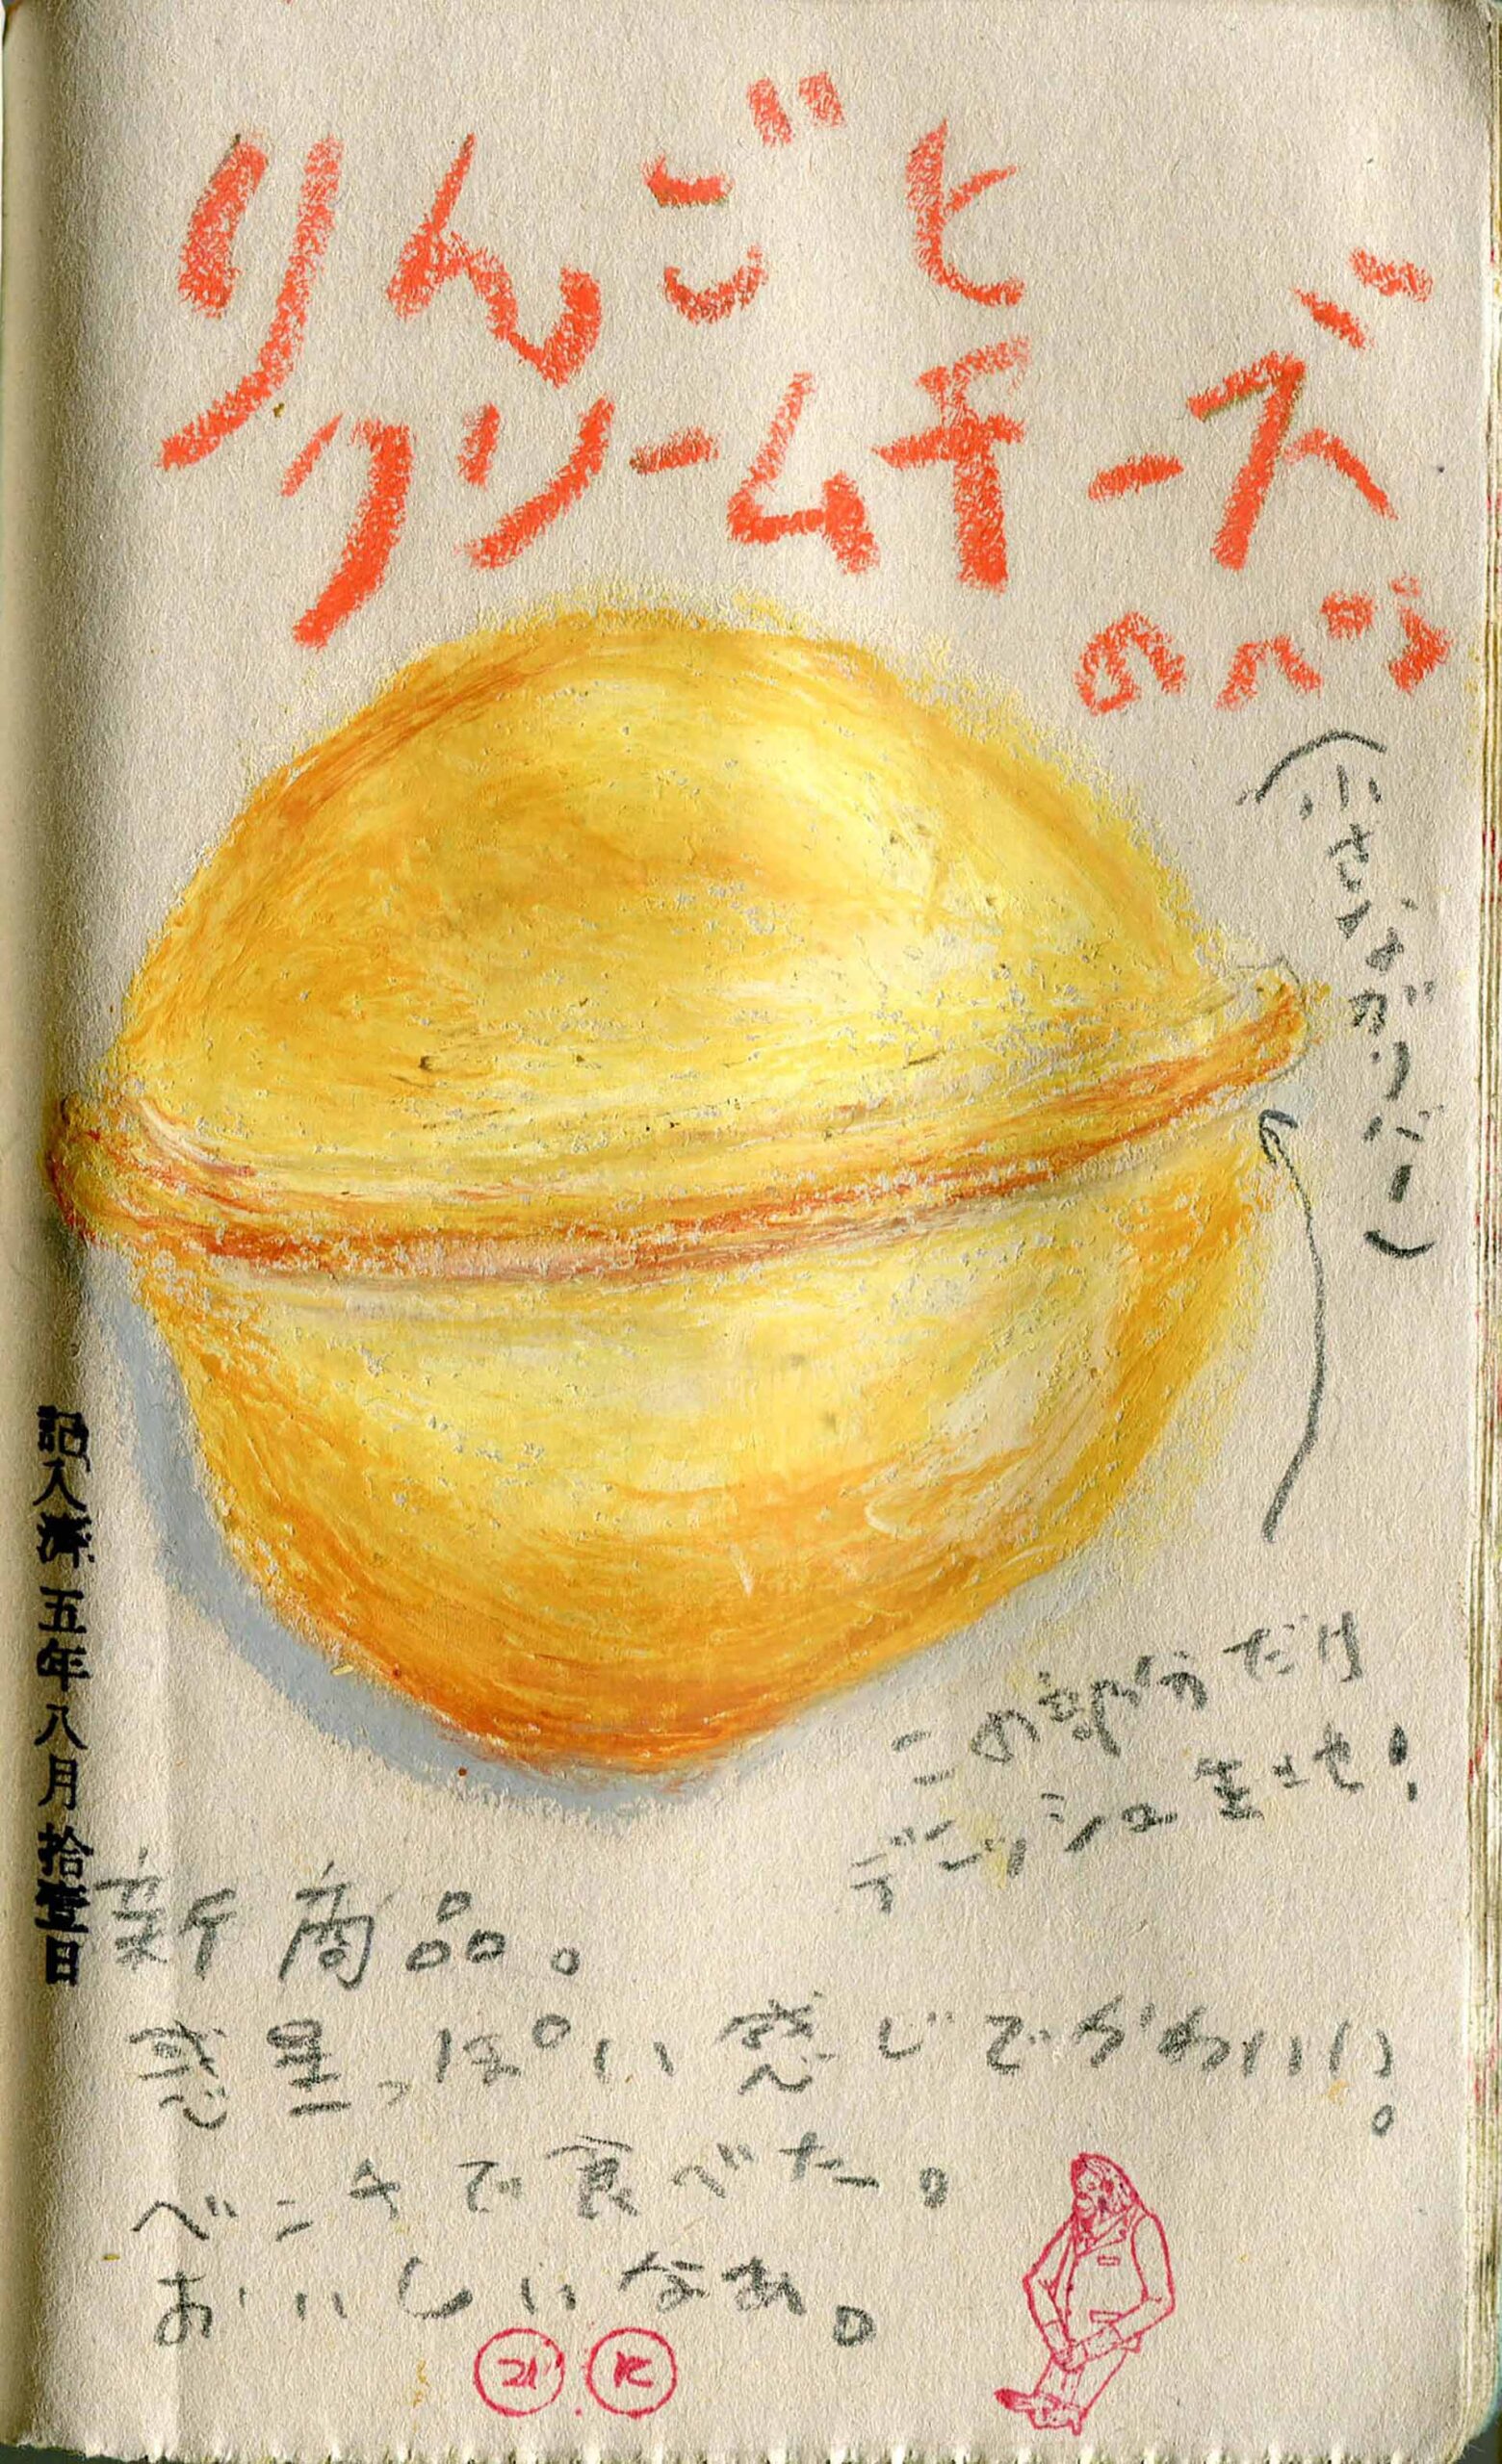 りんごと
クリームチーズ
のパン
(小さなガリバー)
この部分だけ
デニッシュ生地!
記入済 五年八月拾壹日
新商品。
惑星っぽい感じでかわいい。
ベンチで食べた。
おいしいなあ。